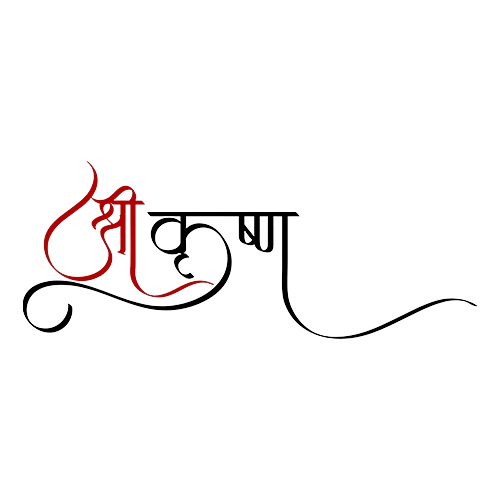 श्री कृष्ण